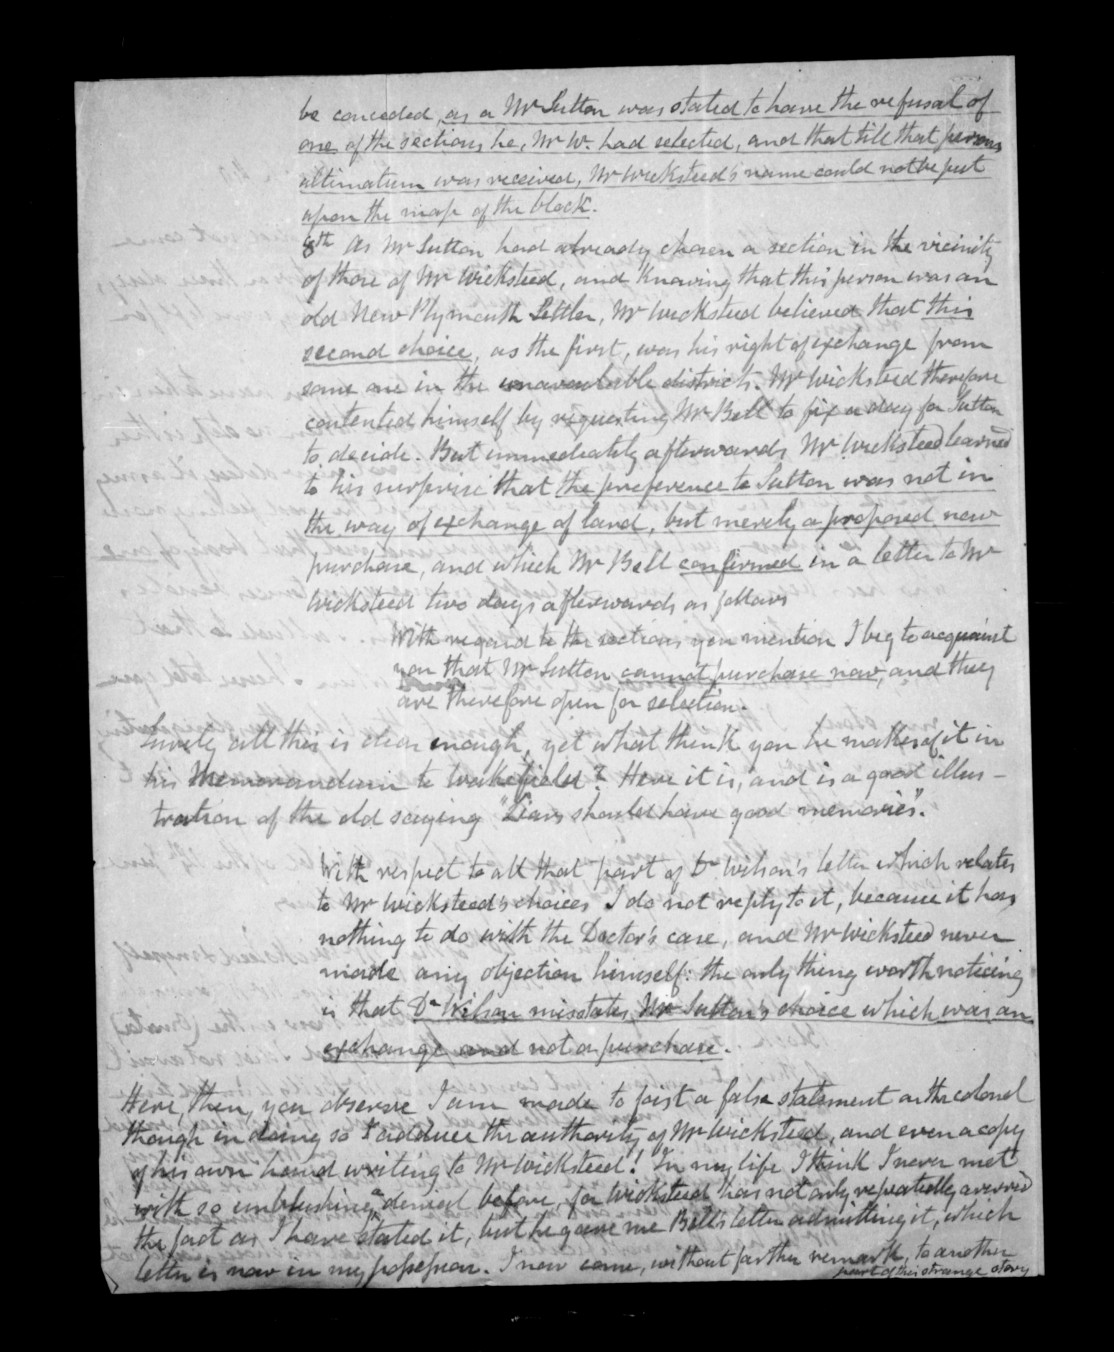 be conceded, as a Mr Sutton was stated to have the refusal of
one of the sections he, Mr W. had selected, and that till that persons
ultimatum was received, Mr Wicksteed's name could not be put
upon the map of the block.
8th As Mr Sutton had already chosen a section in the vicinity
of those of Mr Wicksteed, and knowing that this person was an
old New Plymouth Settler, Mr Wicksteed believed that this
second choice, as the first, was his right of exchange from
some one in the unavailable districts. Mr Wicksteed therefore
contented himself by requesting Mr Bell to fix a day for Sutton
to decide. But immediately afterwards Mr Wicksteed learned
to his surprise that the preference to Sutton was not in
the way of exchange of land, but merely a proposed new
purchase, and which Mr Bell confirmed in a letter to Mr
Wicksteed two days afterwards as follows
With regard to the sections you mention I beg to acquaint
you that Mr Sutton cannot purchase now, and they
are therefore open for selection.
Surely all this is clear enough, yet what think you he makes of it in
his Memorandum to Wakefield? Here it is, and is a good illus-
tration of the old saying "Liars should have good memories".
With respect to all that part of Dr Wilson's letter which relates
to Mr Wicksteed's choices I do not reply to it, because it has
nothing to do with the Doctor's case, and Mr Wicksteed never
made any objection himself: the only thing worth noticing
is that Dr Wilson misstates Mr Sutton's choice which was an
exchange and not a purchase.
Here, then, you observe I am made to foist a false statement on the colonel
though in doing so I adduce the authority of Mr Wicksteed, and even a copy
of his own hand writing to Mr Wicksteed! In my life I think I never met
with so unblushing a denial before, for Wicksteed has not only repeatedly averred
the fact as I have stated it, but he gave me Bell's letter admitting it, which
letter is now in my possession. I now come, without farther remark, to another
part of this strange story